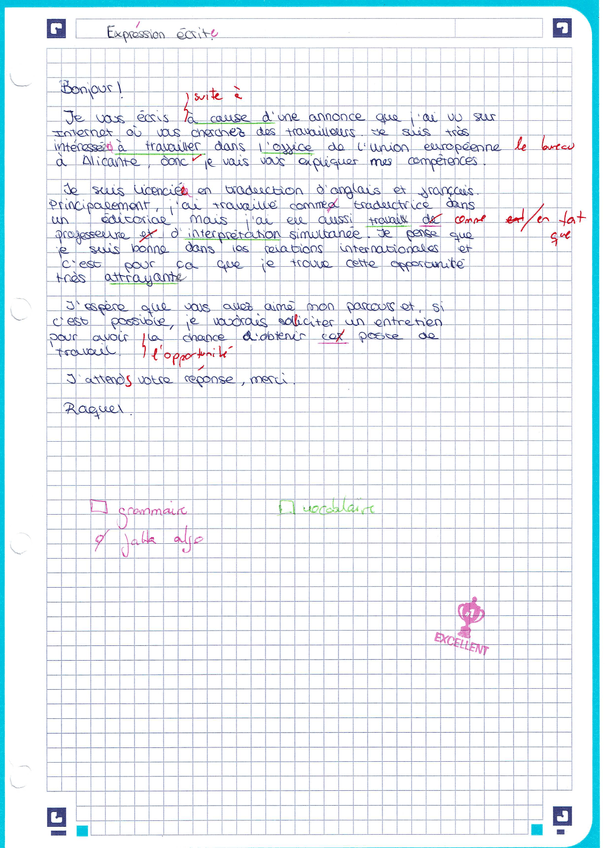 Expréssion écrite
Bonjour!
suite à
Je vous écris à cause d'une annonce que j'ai vu sur
Internet où vous cherchez des travailleurs. Je suis très
intéressé à travailler dans l'office de l'union européenne le bureau
à Alicante, donc je vais vous expliquer mes compétences.
Je suis licenciée en traduction d'anglais et français.
Principalement, j'ai travaillé comme traductrice dans
un éditoriae mais j'ai eu aussi travaillé de comme en/en fait
professeure et d'interprétation simultanée. Je pense que que
je suis bonne dans les relations internationales et
c'est pour ça que je trouve cette opportunité
très attrayante
J'espère que vous avez aimé mon parcours et, si
c'est possible, je voudrais soliciter un entretien
pour avoir la chance d'obtenir cet poste de
travail. l'opportunité
J'attends votre réponse, merci.
Raquel.
grammaire vocabulaire
falta algo
EXCELLENT